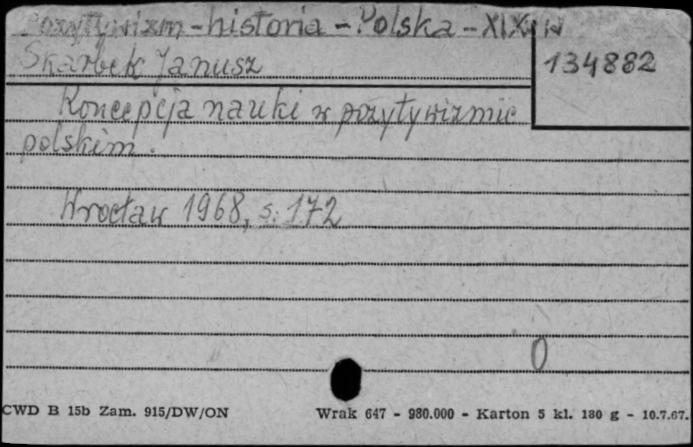 Pozytywizm - historia - Polska - XIX w
Skarbek Janusz
134882
Koncepcja nauki w pozytywizmie
polskim.
Wrocław 1968, s. 172
0
CWD B 15b Zam. 915/DW/ON
Wrak 647 - 980.000 - Karton 5 kl. 180 g - 10.7.67.